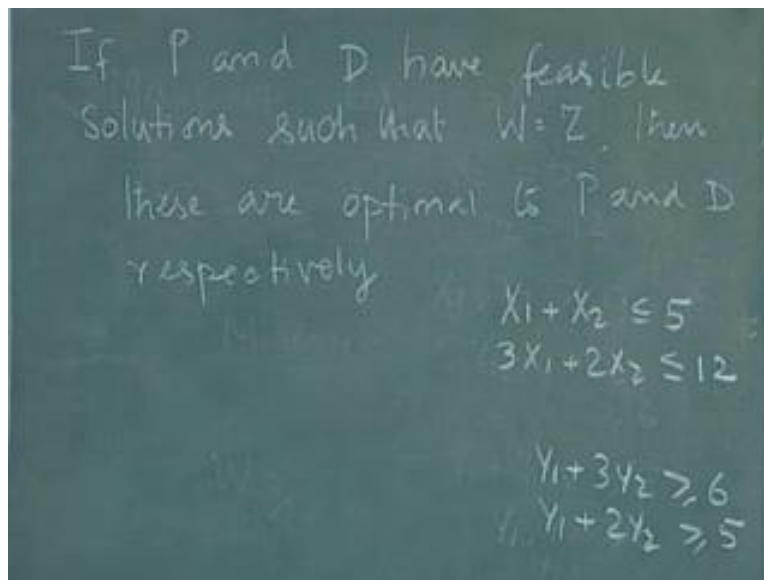 If P and D have feasible
Solutions such that W = Z, then
these are optimal to P and D
respectively
X1 + X2 ≤ 5
3X1 + 2X2 ≤ 12
Y1 + 3Y2 ≥ 6
Y1 + 2Y2 ≥ 5